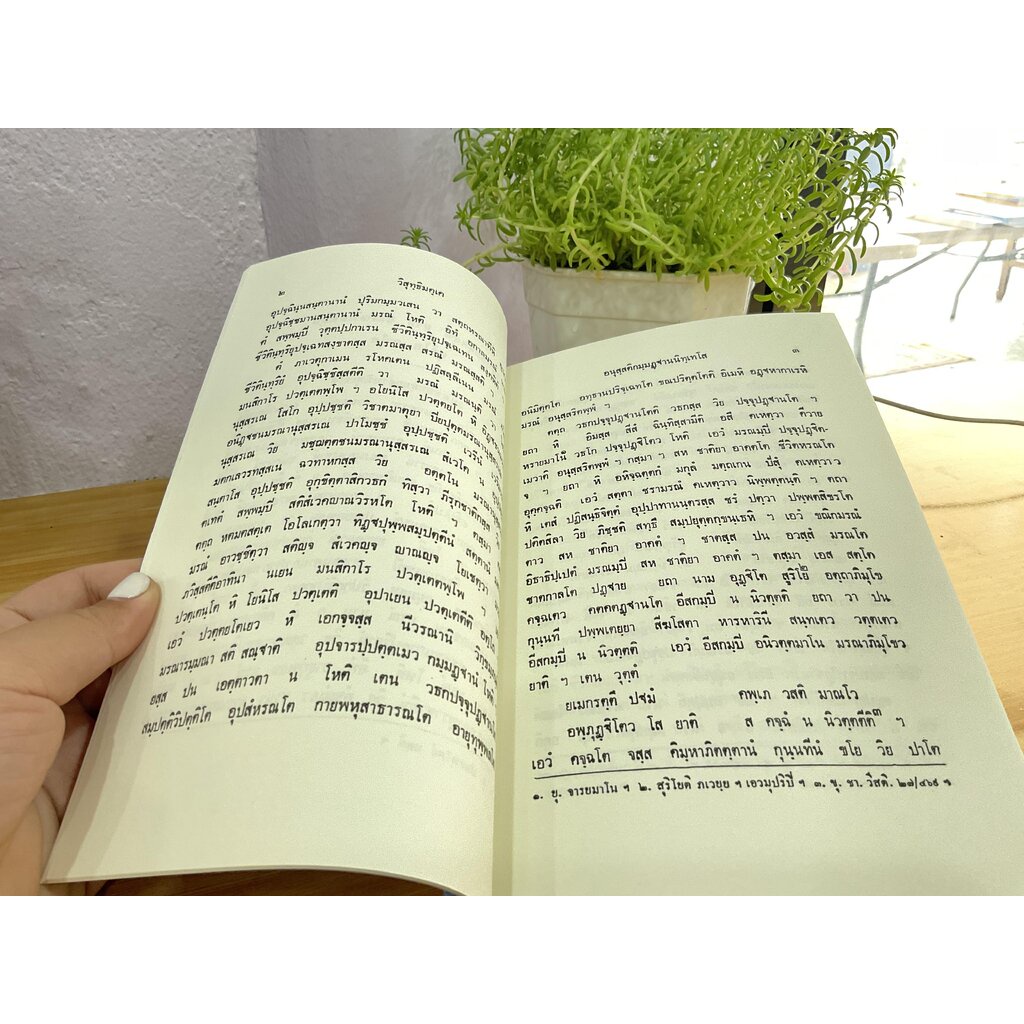 ๒ วิสุทฺธิมคฺเค
อุปจฺฉินฺนสนฺตานานํ ปุริมกมฺมวเสน วา สตฺถหรณาทีหิ
อุปจฺฉิชฺชมานสนฺตานานํ มรณํ โหติ อิทํ อกาลมรณํ
ตํ สพฺพมฺปิ วุตฺตปฺปกาเรน ชีวิตินฺทฺริยุปจฺเฉเทน
ชีวิตินฺทฺริยุปจฺเฉทสงฺขาตสฺส มรณสฺส สรณํ มรณสฺสติ
ตํ ภาเวตุกาเมน รโหคเตน ปฏิสลฺลีเนน
ชีวิตินฺทฺริยํ อุปจฺฉิชฺชิสฺสตีติ วา มรณํ มรณนฺติ
มนสิกาโร ปวตฺเตตพฺโพ ฯ อโยนิโส ปวตฺตยโต หิ
นุสฺสรเณ โสโก อุปฺปชฺชติ วิชาตมาตุยา ปิยปุตฺตมรณา
อนิฏฺฐชนมรณานุสฺสรเณ ปาโมชฺชํ อุปฺปชฺชติ เวรีนํ
นุสฺสรเณ วิย มชฺฌตฺตชนมรณานุสฺสรเณ สํเวโค
มตกเลวรทสฺสเน ฉวฑาหกสฺส วิย อตฺตโน
สนฺตาโส อุปฺปชฺชติ อุกฺขิตฺตาสิกวธกํ ทิสฺวา ภีรุกชาติกสฺส
ตเทตํ สพฺพมฺปิ สติสํเวคญาณวิรหโต โหติ ฯ ตสฺมา
ตตฺถ หตมตสตฺเต โอโลเกตฺวา ทิฏฺฐปุพฺพสมฺปตฺตีนํ สตฺตานํ
มรณํ อาวชฺชิตฺวา สติญฺจ สํเวคญฺจ ญาณญฺจ โยเชตฺวา
ภวิสฺสตีติอาทินา นเยน มนสิกาโร ปวตฺเตตพฺโพ ฯ
ปวตฺเตนฺโต หิ โยนิโส ปวตฺเตติ อุปาเยน ปวตฺเตตีติ อตฺโถ
เอวํ ปวตฺตยโตเยว หิ เอกจฺจสฺส นีวรณานิ
มรณารมฺมณา สติ สณฺฐาติ อุปจารปฺปตฺตเมว กมฺมฏฺฐานํ โหติ
ยสฺส ปน เอตฺตาวตา น โหติ เตน วธกปจฺจุปฏฺฐานโต
สมฺปตฺติวิปตฺติโต อุปสํหรณโต กายพหุสาธารณโต อายุทุพฺพลโต
อนุสฺสติกมฺมฏฺฐานนิทฺเทโส ๓
อนิมิตฺตโต อทฺธานปริจฺเฉทโต ขณปริตฺตโตติ อิเมหิ อฏฺฐหากาเรหิ
มรณํ อนุสฺสริตพฺพํ ฯ
ตตฺถ วธกปจฺจุปฏฺฐานโตติ วธกสฺส วิย ปจฺจุปฏฺฐานโต ฯ
ยถา หิ อิมสฺส สีสํ ฉินฺทิสฺสามีติ อสึ คเหตฺวา คีวาย
หรายมาโน๑ วธโก ปจฺจุปฏฺฐิโตว โหติ เอวํ มรณมฺปิ ปจฺจุปฏฺฐิต-
เมวาติ อนุสฺสริตพฺพํ ฯ กสฺมา ฯ สห ชาติยา อาคตโต ชีวิตหรณโต
จ ฯ ยถา หิ อหิจฺฉตฺตกํ มกุลํ มตฺถเกน ปํสุํ คเหตฺวาว
อุคฺคจฺฉติ เอวํ สตฺตา ชรามรณํ คเหตฺวาว นิพฺพตฺตนฺติ ฯ ตถา
หิ เตสํ ปฏิสนฺธิจิตฺตํ อุปฺปาทานนฺตรสฺส ชรํ ปตฺวา ปพฺพตสิขรโต
ปติตสิลา วิย ภิชฺชติ สทฺธึ สมฺปยุตฺตกฺขนฺเธหิ ฯ เอวํ ขณิกมรณํ
ตาว สห ชาติยา อาคตํ ฯ ชาตสฺส ปน อวสฺสํ มรณโต
อิธาธิปฺเปตํ มรณมฺปิ สห ชาติยา อาคตํ ฯ ตสฺมา เอส สตฺโต
ชาตกาลโต ปฏฺฐาย ยถา นาม อุฏฺฐิโต สุริโย๒ อตฺถาภิมุโข
คจฺฉเตว คตคตฏฺฐานโต อีสกมฺปิ น นิวตฺตติ ยถา วา ปน
กุนฺนที ปพฺพเตยฺยา สีฆโสตา หารหารินี สนฺทเตว วตฺตเตว
อีสกมฺปิ น นิวตฺตติ เอวํ อีสกมฺปิ อนิวตฺตมาโน มรณาภิมุโขว
ยาติ ฯ เตน วุตฺตํ
ยเมกรตฺตึ ปฐมํ คพฺเภ วสติ มาณโว
อพฺภุฏฺฐิโตว โส ยาติ ส คจฺฉํ น นิวตฺตตีติ๓ ฯ
เอวํ คจฺฉโต จสฺส คิมฺหาภิตตฺตานํ กุนฺนทีนํ ขโย วิย ปาโต
๑. ยุ. จารยมาโน ฯ ๒. สุริโยติ ภเวยฺย ฯ เอวมุปริปิ ฯ ๓. ขุ. ชา. วีสติ. ๒๗/๔๖๘ ฯ